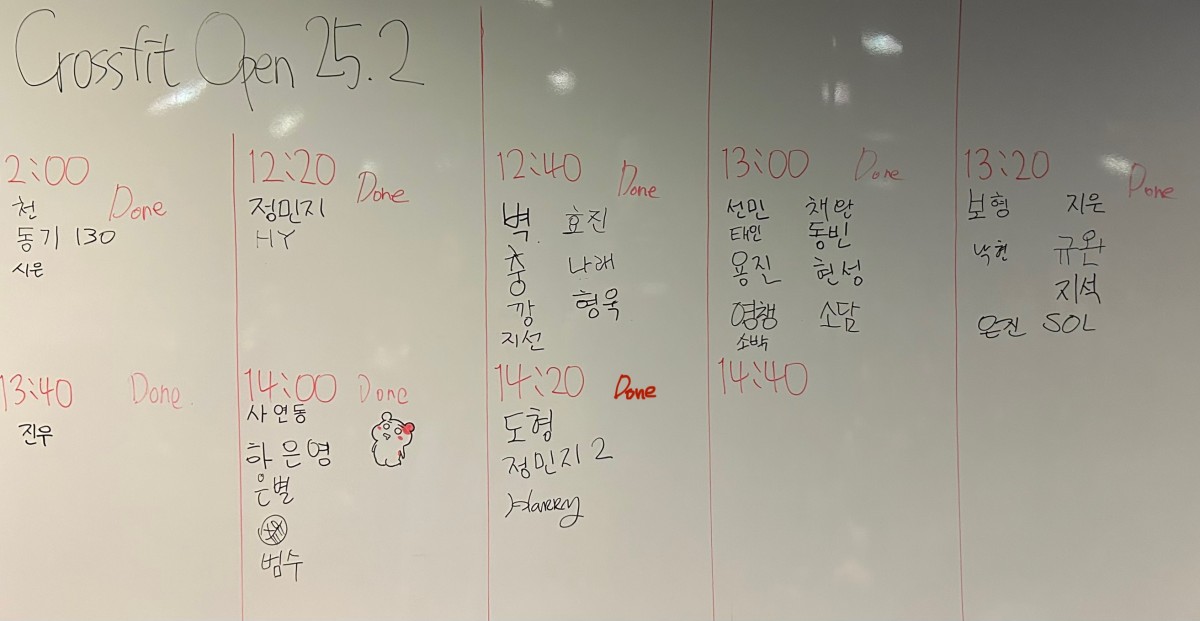 Crossfit Open 25.2
2:00 Done
천
동기 130
시은
12:20 Done
정민지
HY
12:40 Done
벽 효진
충 나래
깡 형욱
지선
13:00 Done
선민 채안
태인 동빈
용진 현성
영챙 소담
소박
13:20 Done
보형 지은
낙현 규완
지석
은진 SOL
13:40 Done
진우
14:00 Done
사연동
하은영
은별
범수
14:20 Done
도형
정민지 2
Harry
14:40